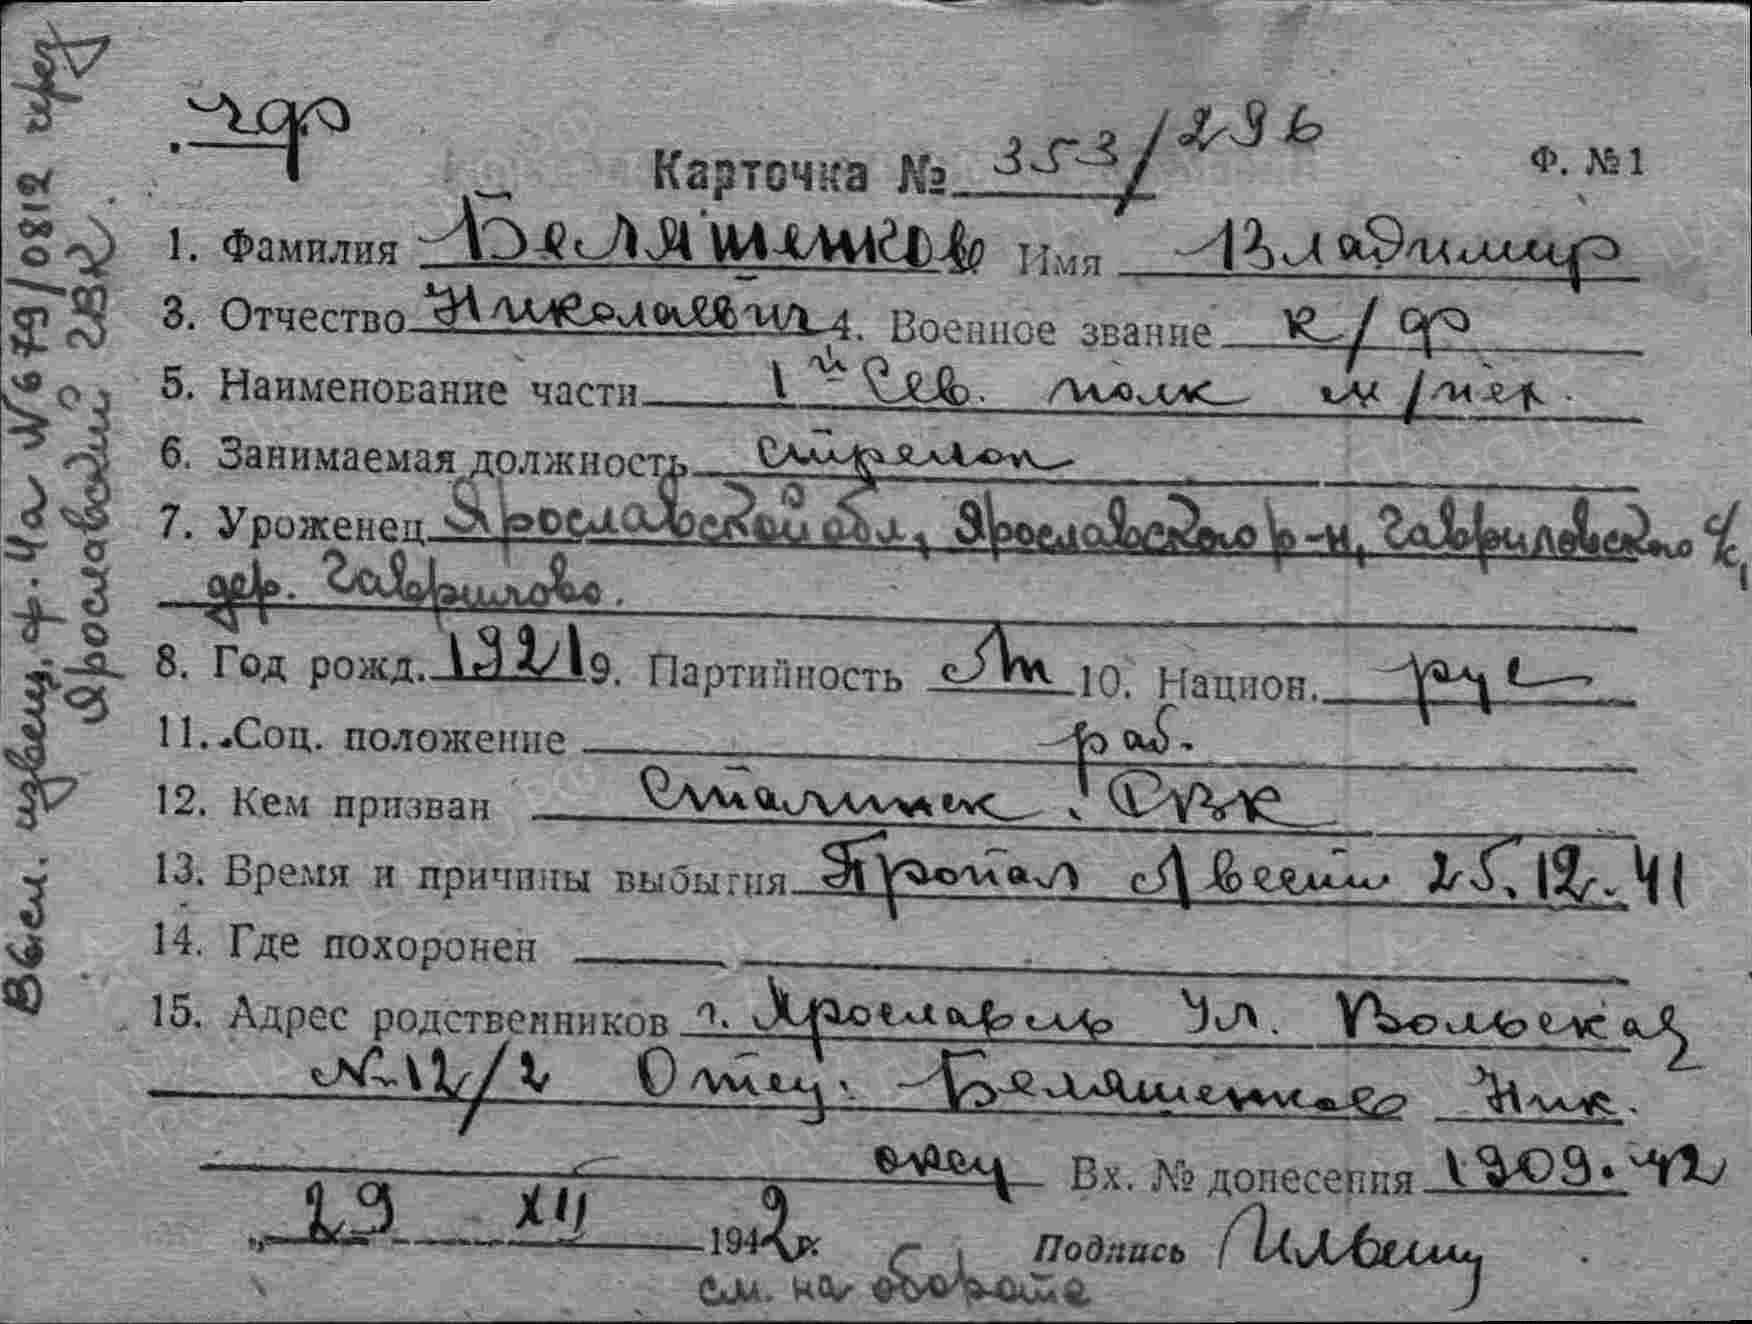 Карточка № 353/296 Ф. №1
1. Фамилия Беляшенков Имя Владимир
3. Отчество Николаевич 4. Военное звание к/ф
5. Наименование части 1й Сев. полк м/пех.
6. Занимаемая должность стрелок
7. Уроженец Ярославской обл, Ярославского р-н, Гавриловского с/с,
дер. Гаврилово.
8. Год рожд. 1921 9. Партийность 10. Национ. рус
11. Соц. положение раб.
12. Кем призван Сталинск. РВК
13. Время и причины выбытия Пропал вести 25.12.41
14. Где похоронен
15. Адрес родственников г. Ярославль Ул. Вольская
№ 12/2 Отец: Беляшенков Ник.
Вх. № донесения 1909.42
„29 XII 1942 г. Подпись
см. на обороте
Высл. извещ. ф. 4а №679/0812 через
Ярославский ГВК.